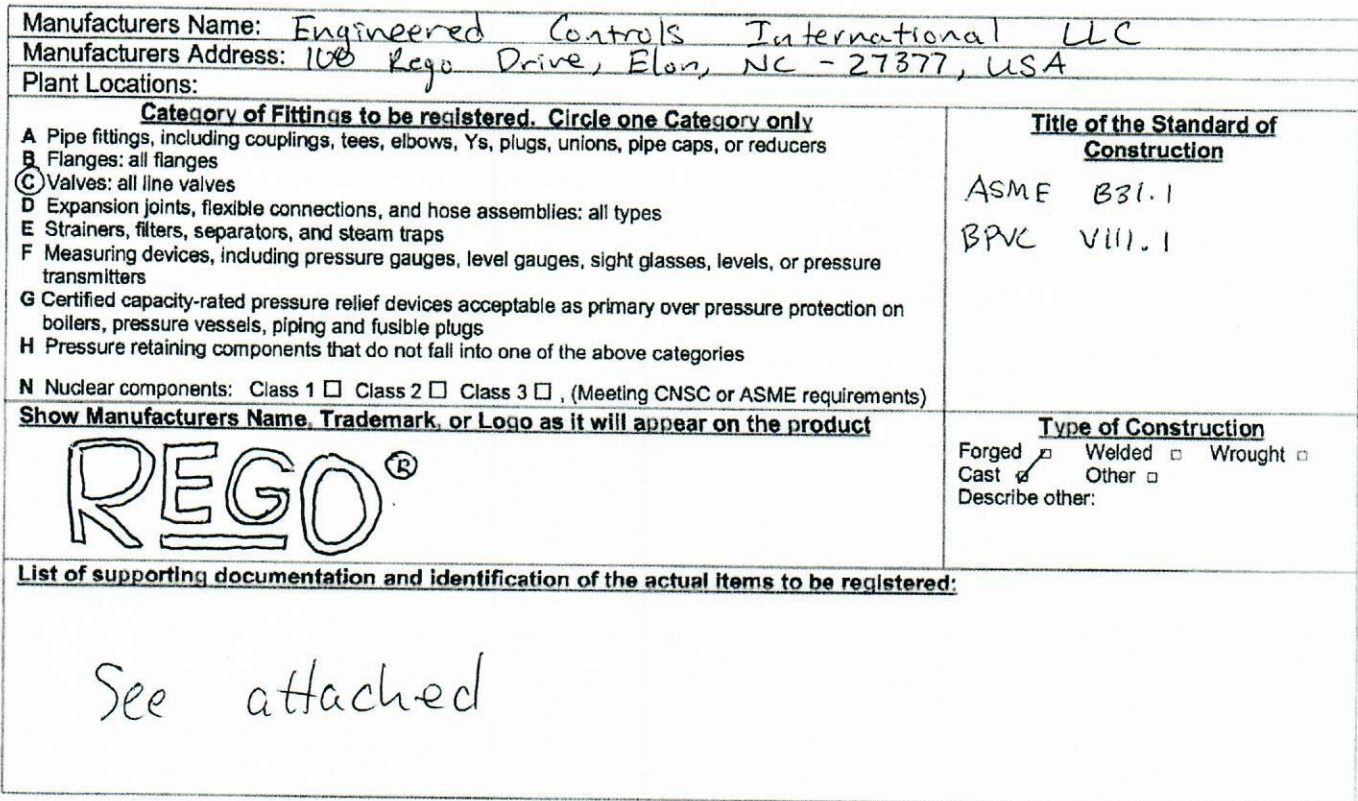 Manufacturers Name: Engineered Controls International LLC
Manufacturers Address: 100 Rego Drive, Elon, NC - 27377, USA
Plant Locations:
Category of Fittings to be registered. Circle one Category only
A Pipe fittings, including couplings, tees, elbows, Ys, plugs, unions, pipe caps, or reducers
B Flanges: all flanges
C Valves: all line valves
D Expansion joints, flexible connections, and hose assemblies: all types
E Strainers, filters, separators, and steam traps
F Measuring devices, including pressure gauges, level gauges, sight glasses, levels, or pressure
transmitters
G Certified capacity-rated pressure relief devices acceptable as primary over pressure protection on
boilers, pressure vessels, piping and fusible plugs
H Pressure retaining components that do not fall into one of the above categories
N Nuclear components: Class 1 ☐ Class 2 ☐ Class 3 ☐ , (Meeting CNSC or ASME requirements)
Title of the Standard of
Construction
ASME B31.1
BPVC VIII.1
Show Manufacturers Name, Trademark, or Logo as it will appear on the product
REGO®
Type of Construction
Forged ☐ Welded ☐ Wrought ☐
Cast ☑ Other ☐
Describe other:
List of supporting documentation and identification of the actual items to be registered:
See attached